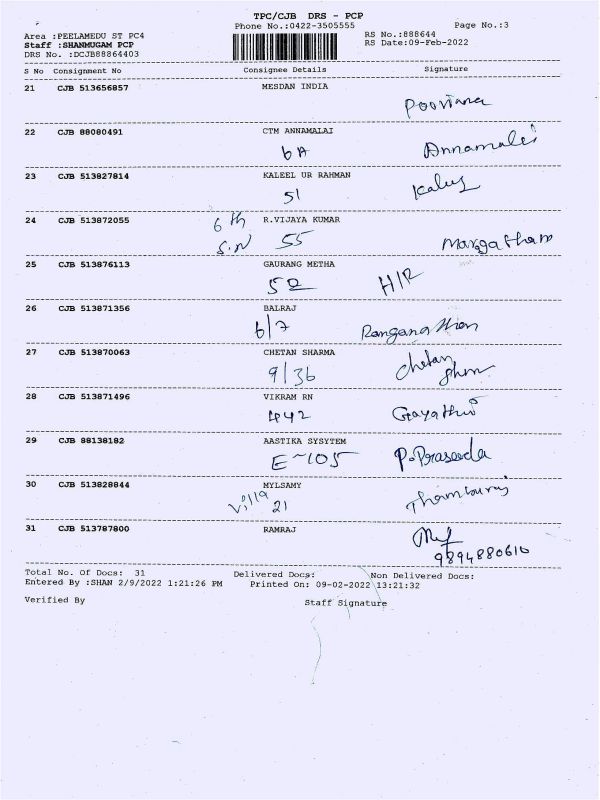 TPC/CJB DRS - PCP
Phone No.:0422-3505555 Page No.:3
Area :PEELAMEDU ST PC4 RS No.:888644
Staff :SHANMUGAM PCP RS Date:09-Feb-2022
DRS No. :DCJB88864403
S No Consignment No Consignee Details Signature
21 CJB 513656857 MESDAN INDIA
Poorima
22 CJB 88080491 CTM ANNAMALAI
6A Annamalai
23 CJB 513827814 KALEEL UR RAHMAN
51
24 CJB 513872055 6th R.VIJAYA KUMAR
S.N 55 Margatham
25 CJB 513876113 GAURANG METHA
52 H/R
26 CJB 513871356 BALRAJ
6/7 Ranganathan
27 CJB 513870063 CHETAN SHARMA
9/36 Chetan
28 CJB 513871496 VIKRAM RN
442 Gayathri
29 CJB 88138182 AASTIKA SYSYTEM
E-105 P.Praseeda
30 CJB 513828844 MYLSAMY
Villa 21
31 CJB 513787800 RAMRAJ
9894880610
Total No. Of Docs: 31 Delivered Docs: Non Delivered Docs:
Entered By :SHAN 2/9/2022 1:21:26 PM Printed On: 09-02-2022 13:21:32
Verified By Staff Signature